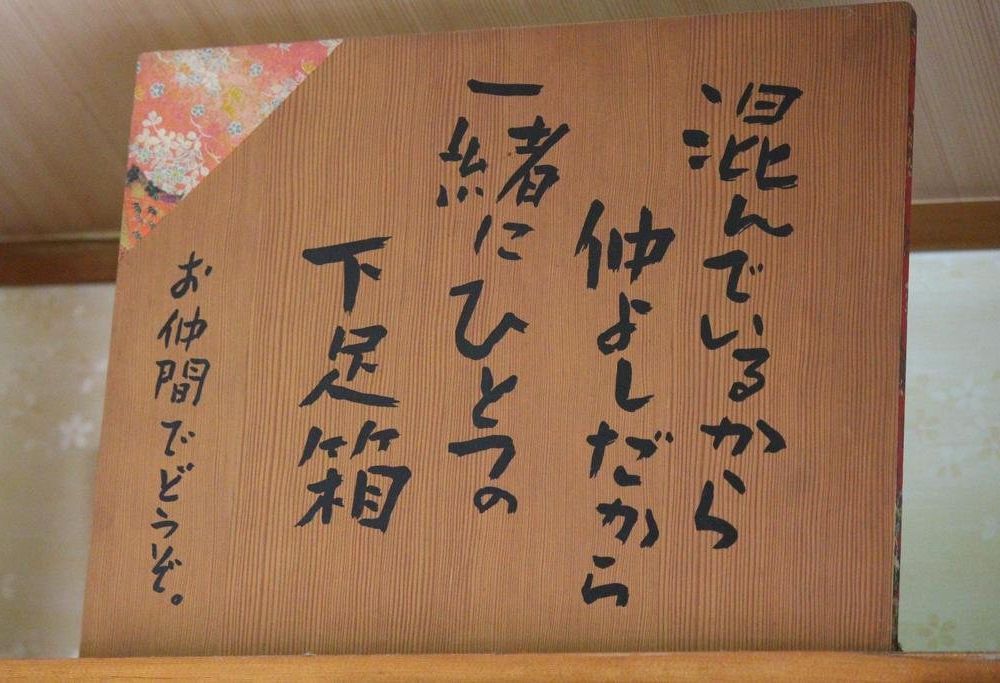 混んでいるから
仲よしだから
一緒にひとつの
下足箱
お仲間でどうぞ。